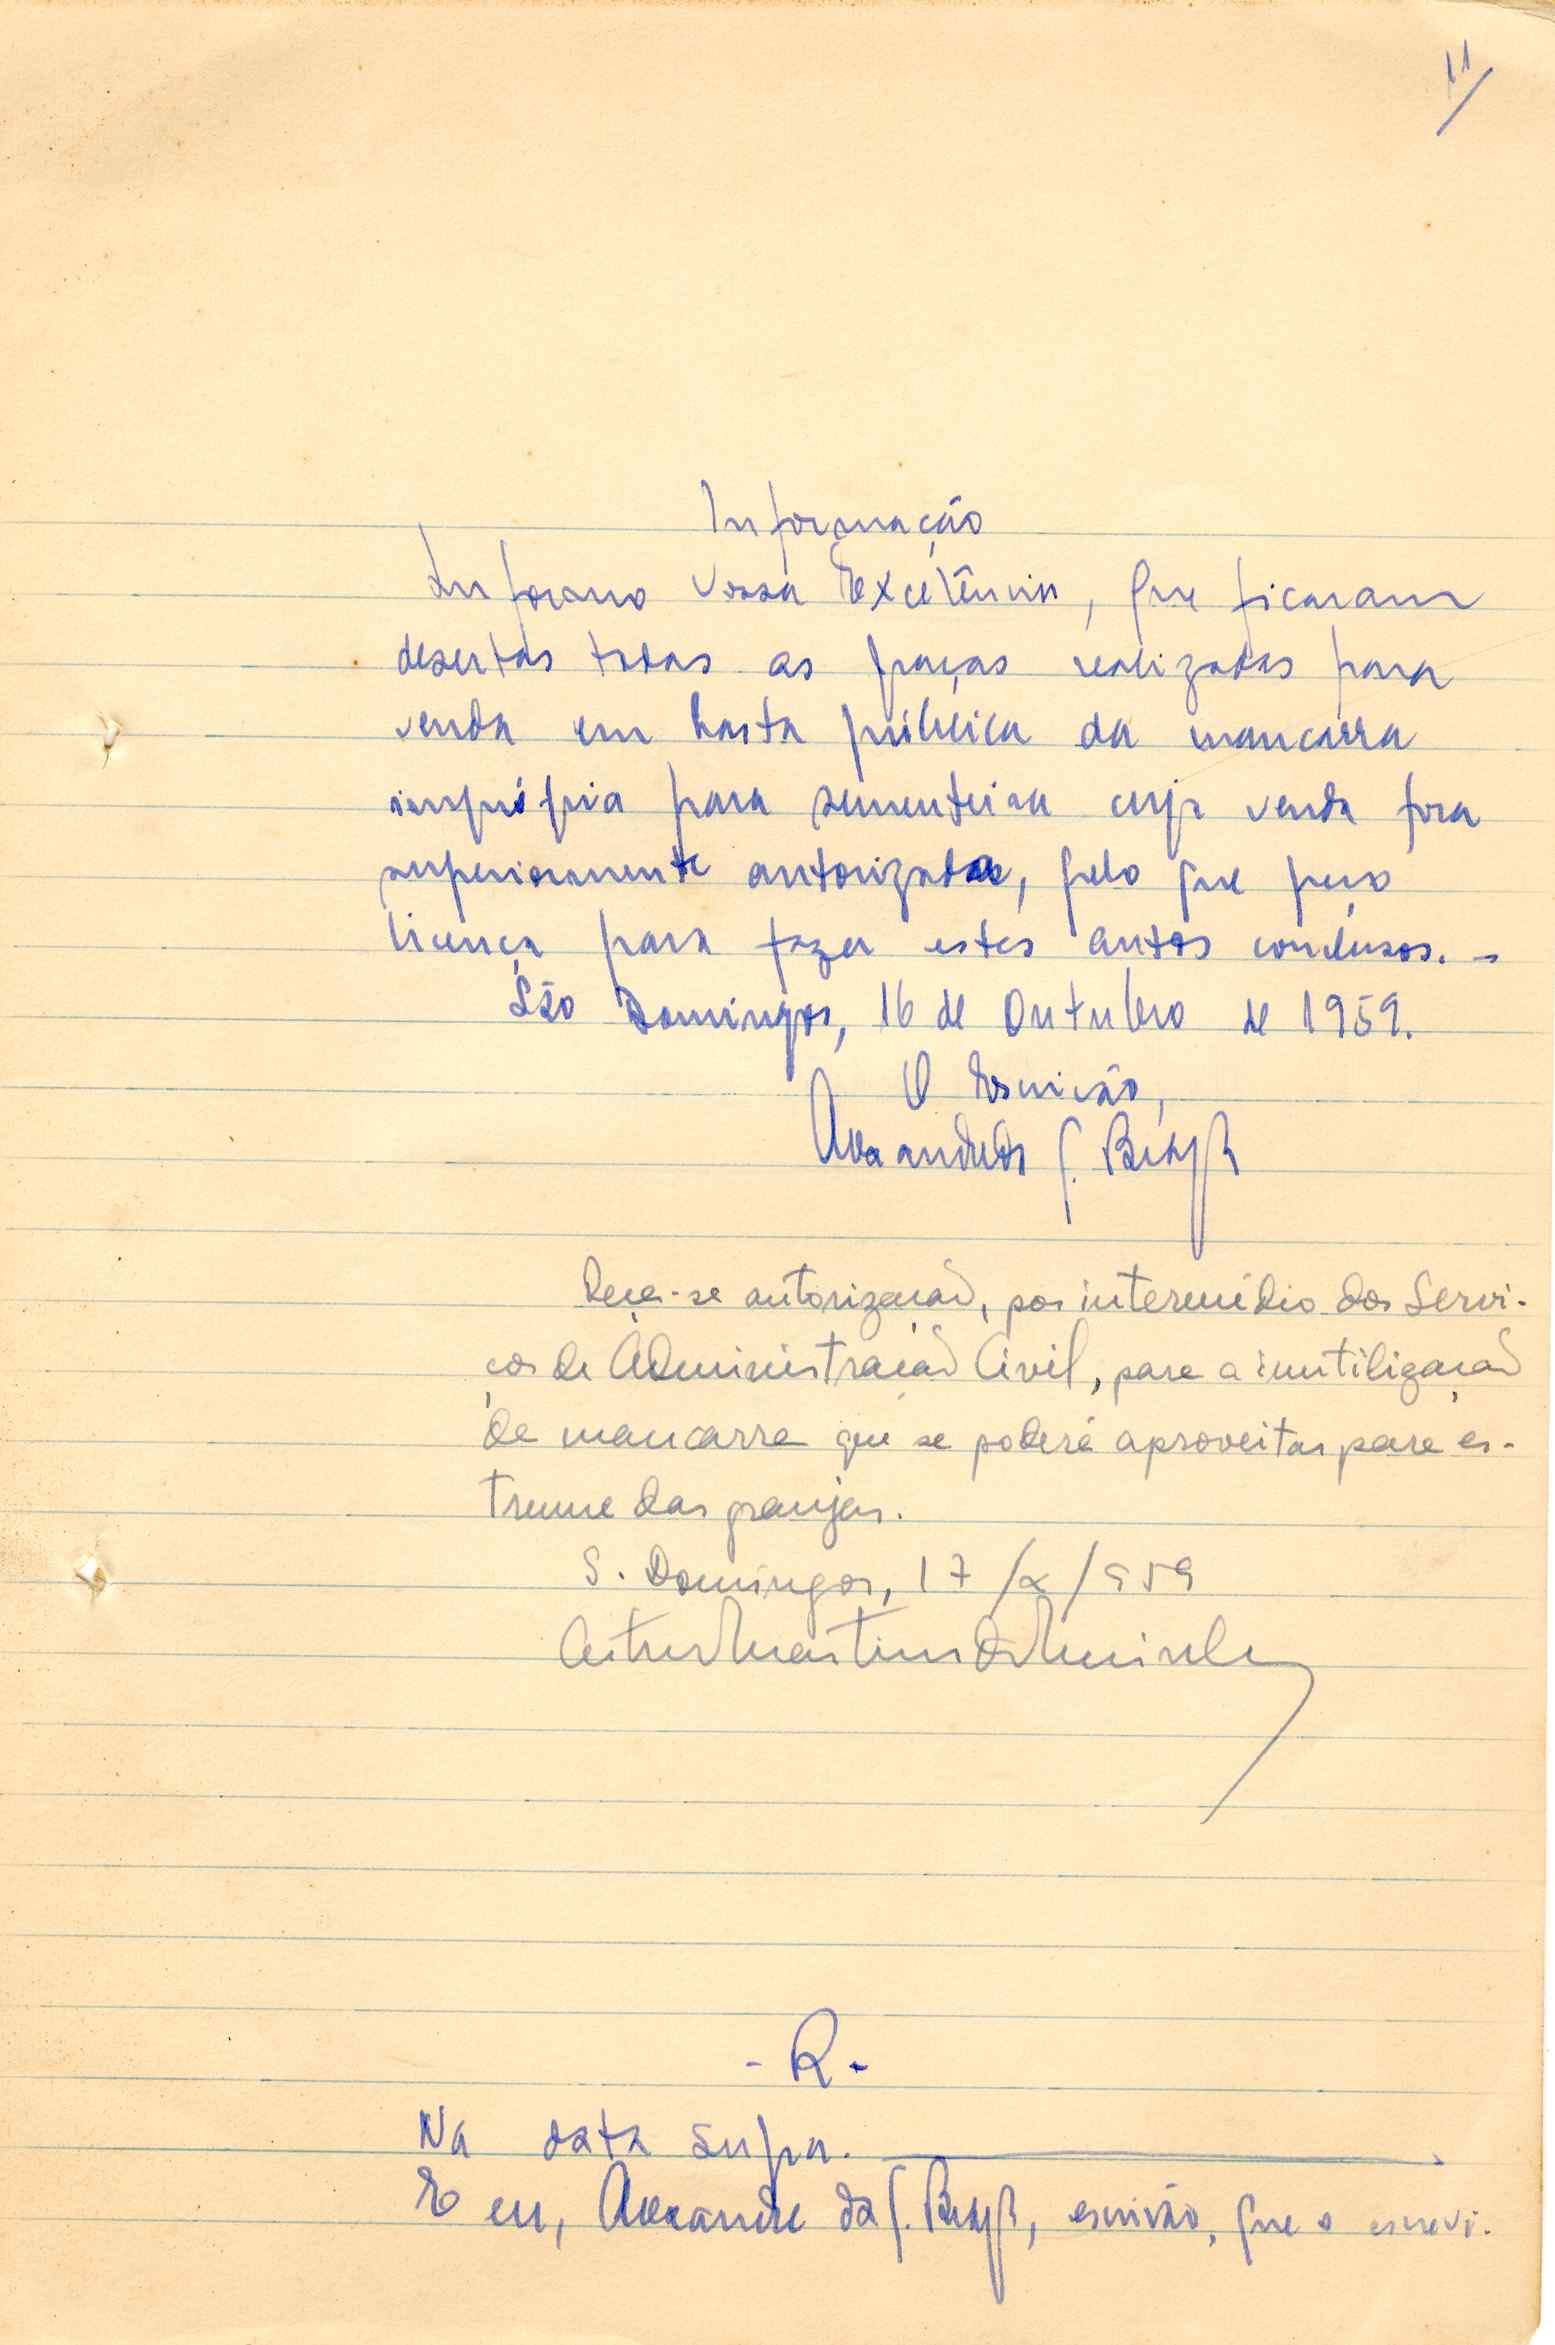 11
Informação
Informo Vossa Excelência, que ficaram
desertas todas as praças realizadas para
venda em hasta pública da mancarra
imprópria para sementeira cuja venda fora
superiormente autorizada, pelo que peço
licença para fazer estes autos conclusos. -
São Domingos, 16 de Outubro de 1959.
O Escrivão,
Alexandre da S.
Peça-se autorização, por intermédio dos Servi-
ços de Administração Civil, para a inutilização
da mancarra que se poderá aproveitar para es-
trume das granjas.
S. Domingos, 17/X/959
- R -
Na data supra.
E eu, Alexandre da S. escrivão, que o escrevi.